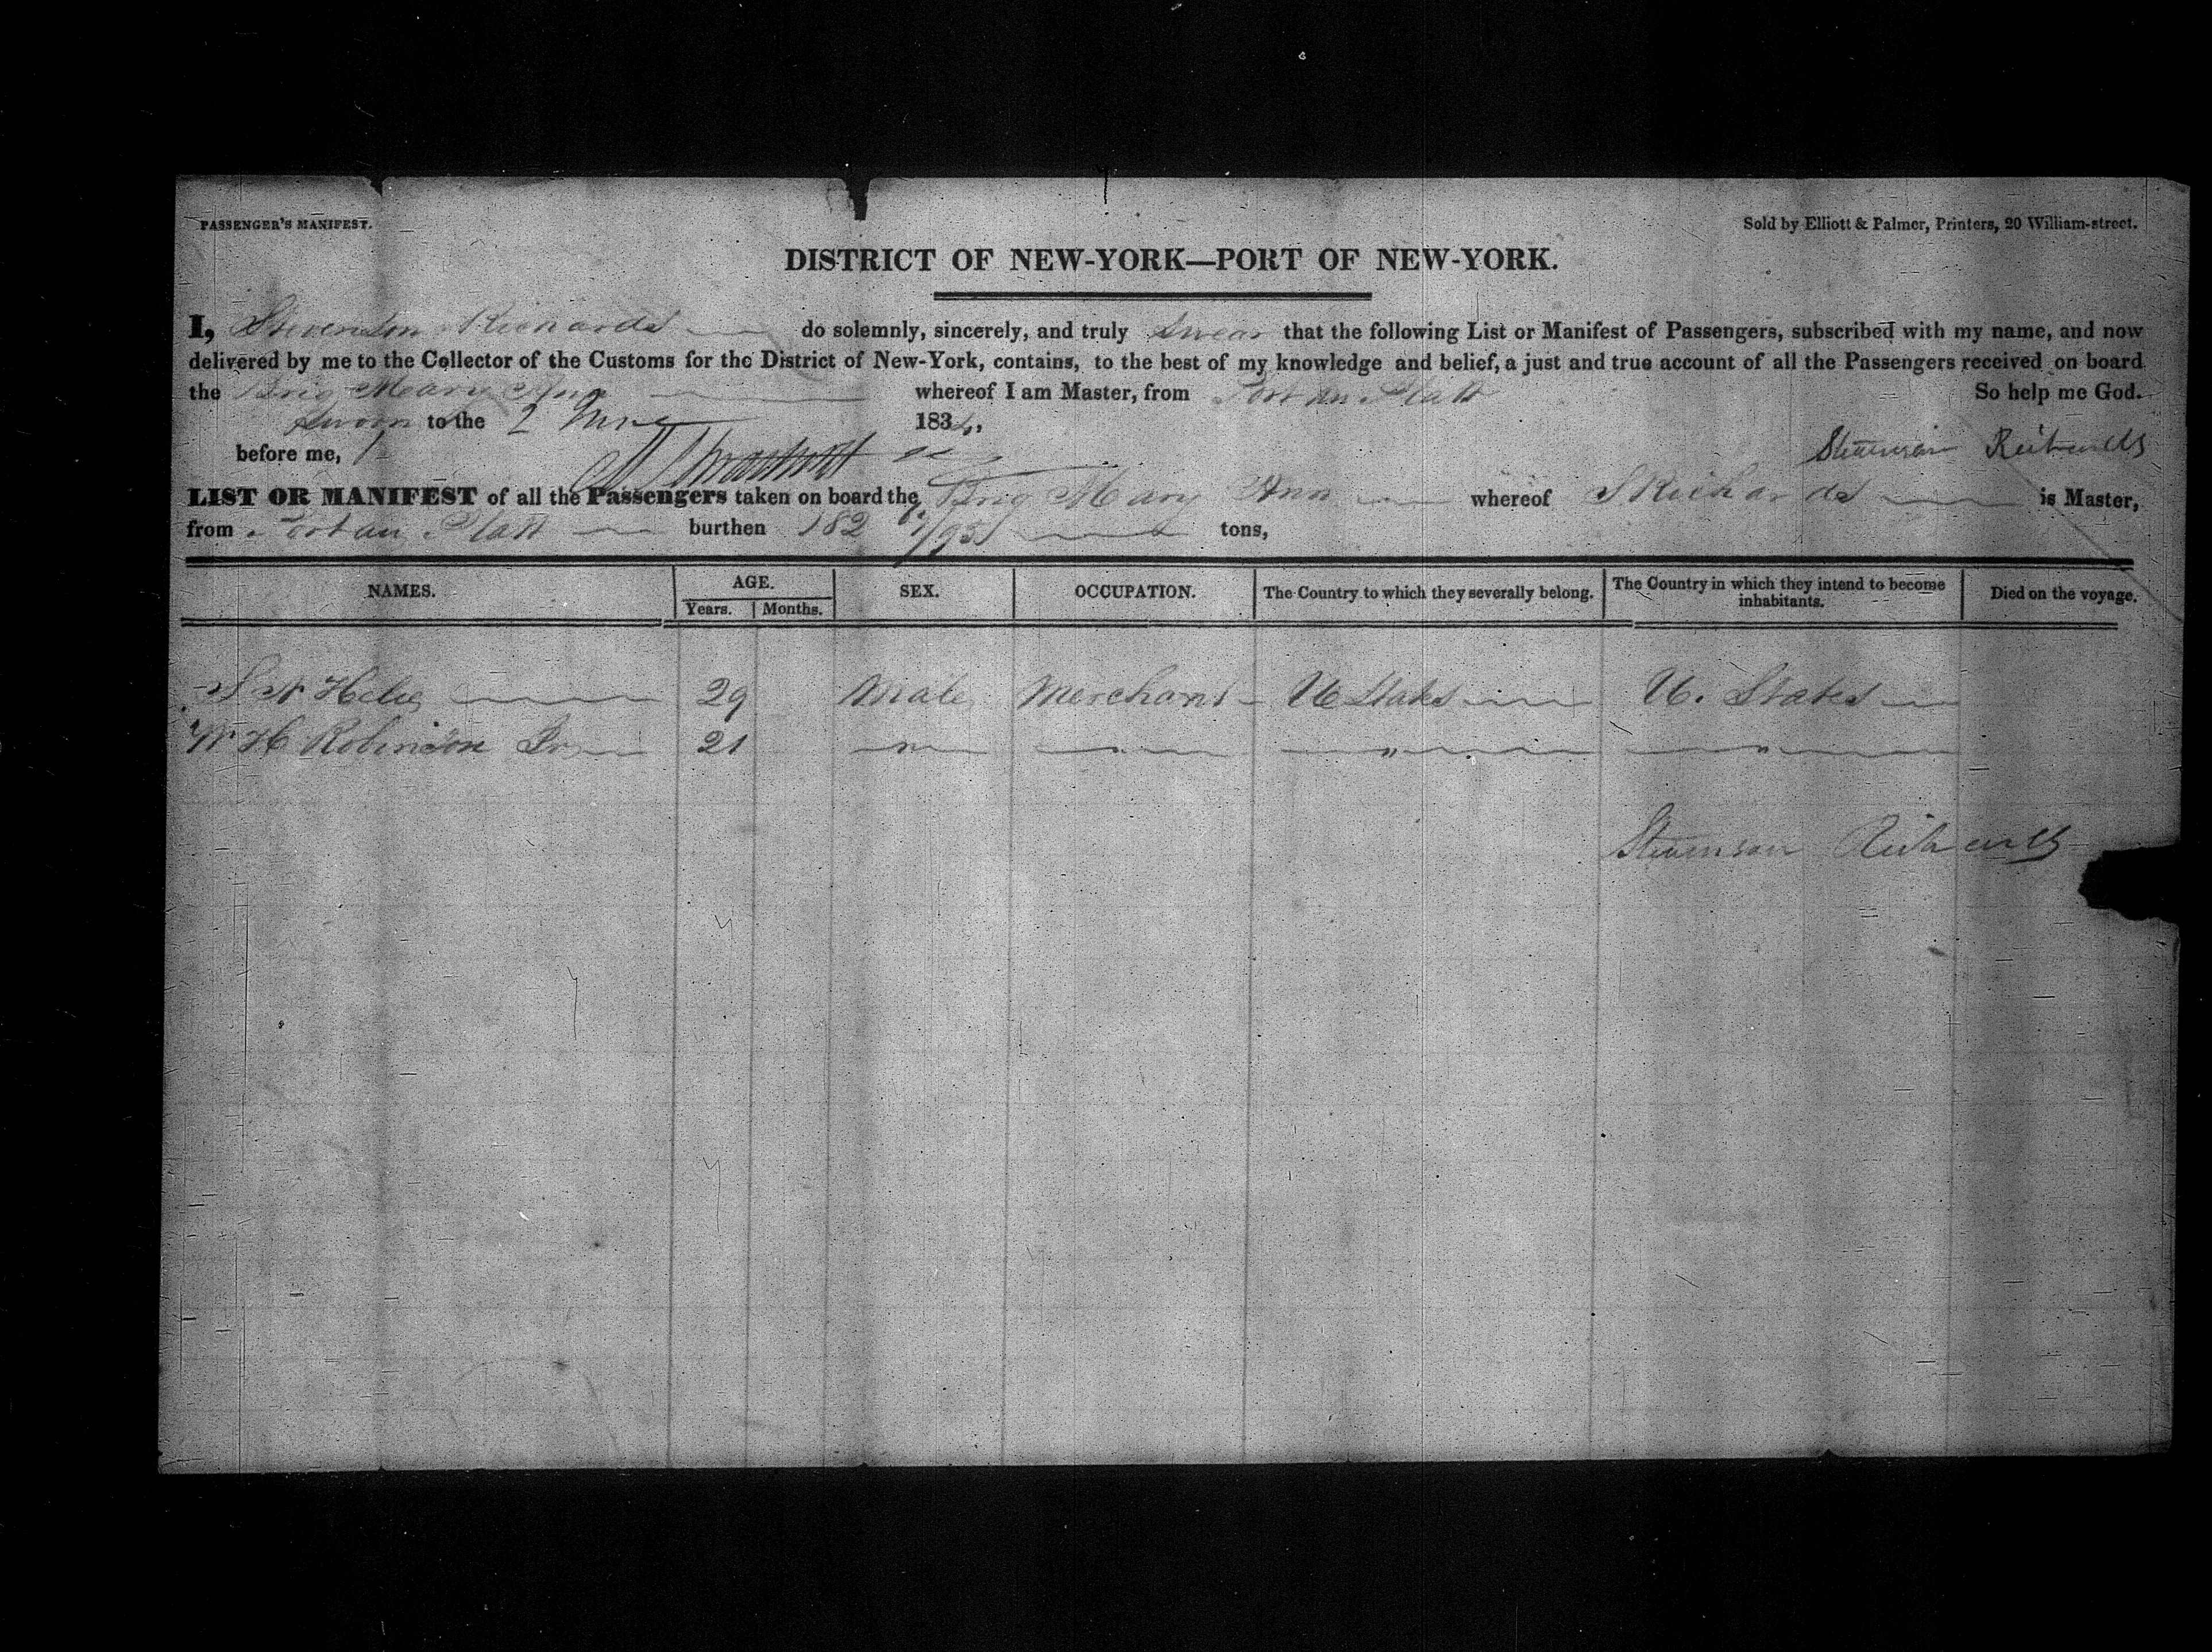 PASSENGER'S MANIFEST. Sold by Elliott & Palmer, Printers, 20 William-street.
DISTRICT OF NEW-YORK—PORT OF NEW-YORK.
I, Stevenson Richards do solemnly, sincerely, and truly swear that the following List or Manifest of Passengers, subscribed with my name, and now
delivered by me to the Collector of the Customs for the District of New-York, contains, to the best of my knowledge and belief, a just and true account of all the Passengers received on board
the Brig Mary Ann whereof I am Master, from Port au Platt So help me God.
Sworn to the 2 June 183
before me, Stevenson Richards
LIST OR MANIFEST of all the Passengers taken on board the Brig Mary Ann whereof S Richards is Master,
from Port au Platt burthen 182 /95 tons,
NAMES. AGE. SEX. OCCUPATION. The Country to which they severally belong. The Country in which they intend to become inhabitants. Died on the voyage.
Years. Months.
29 Male Merchant U States U. States
W H Robinson Jr 21 " " " "
Stevenson Richards